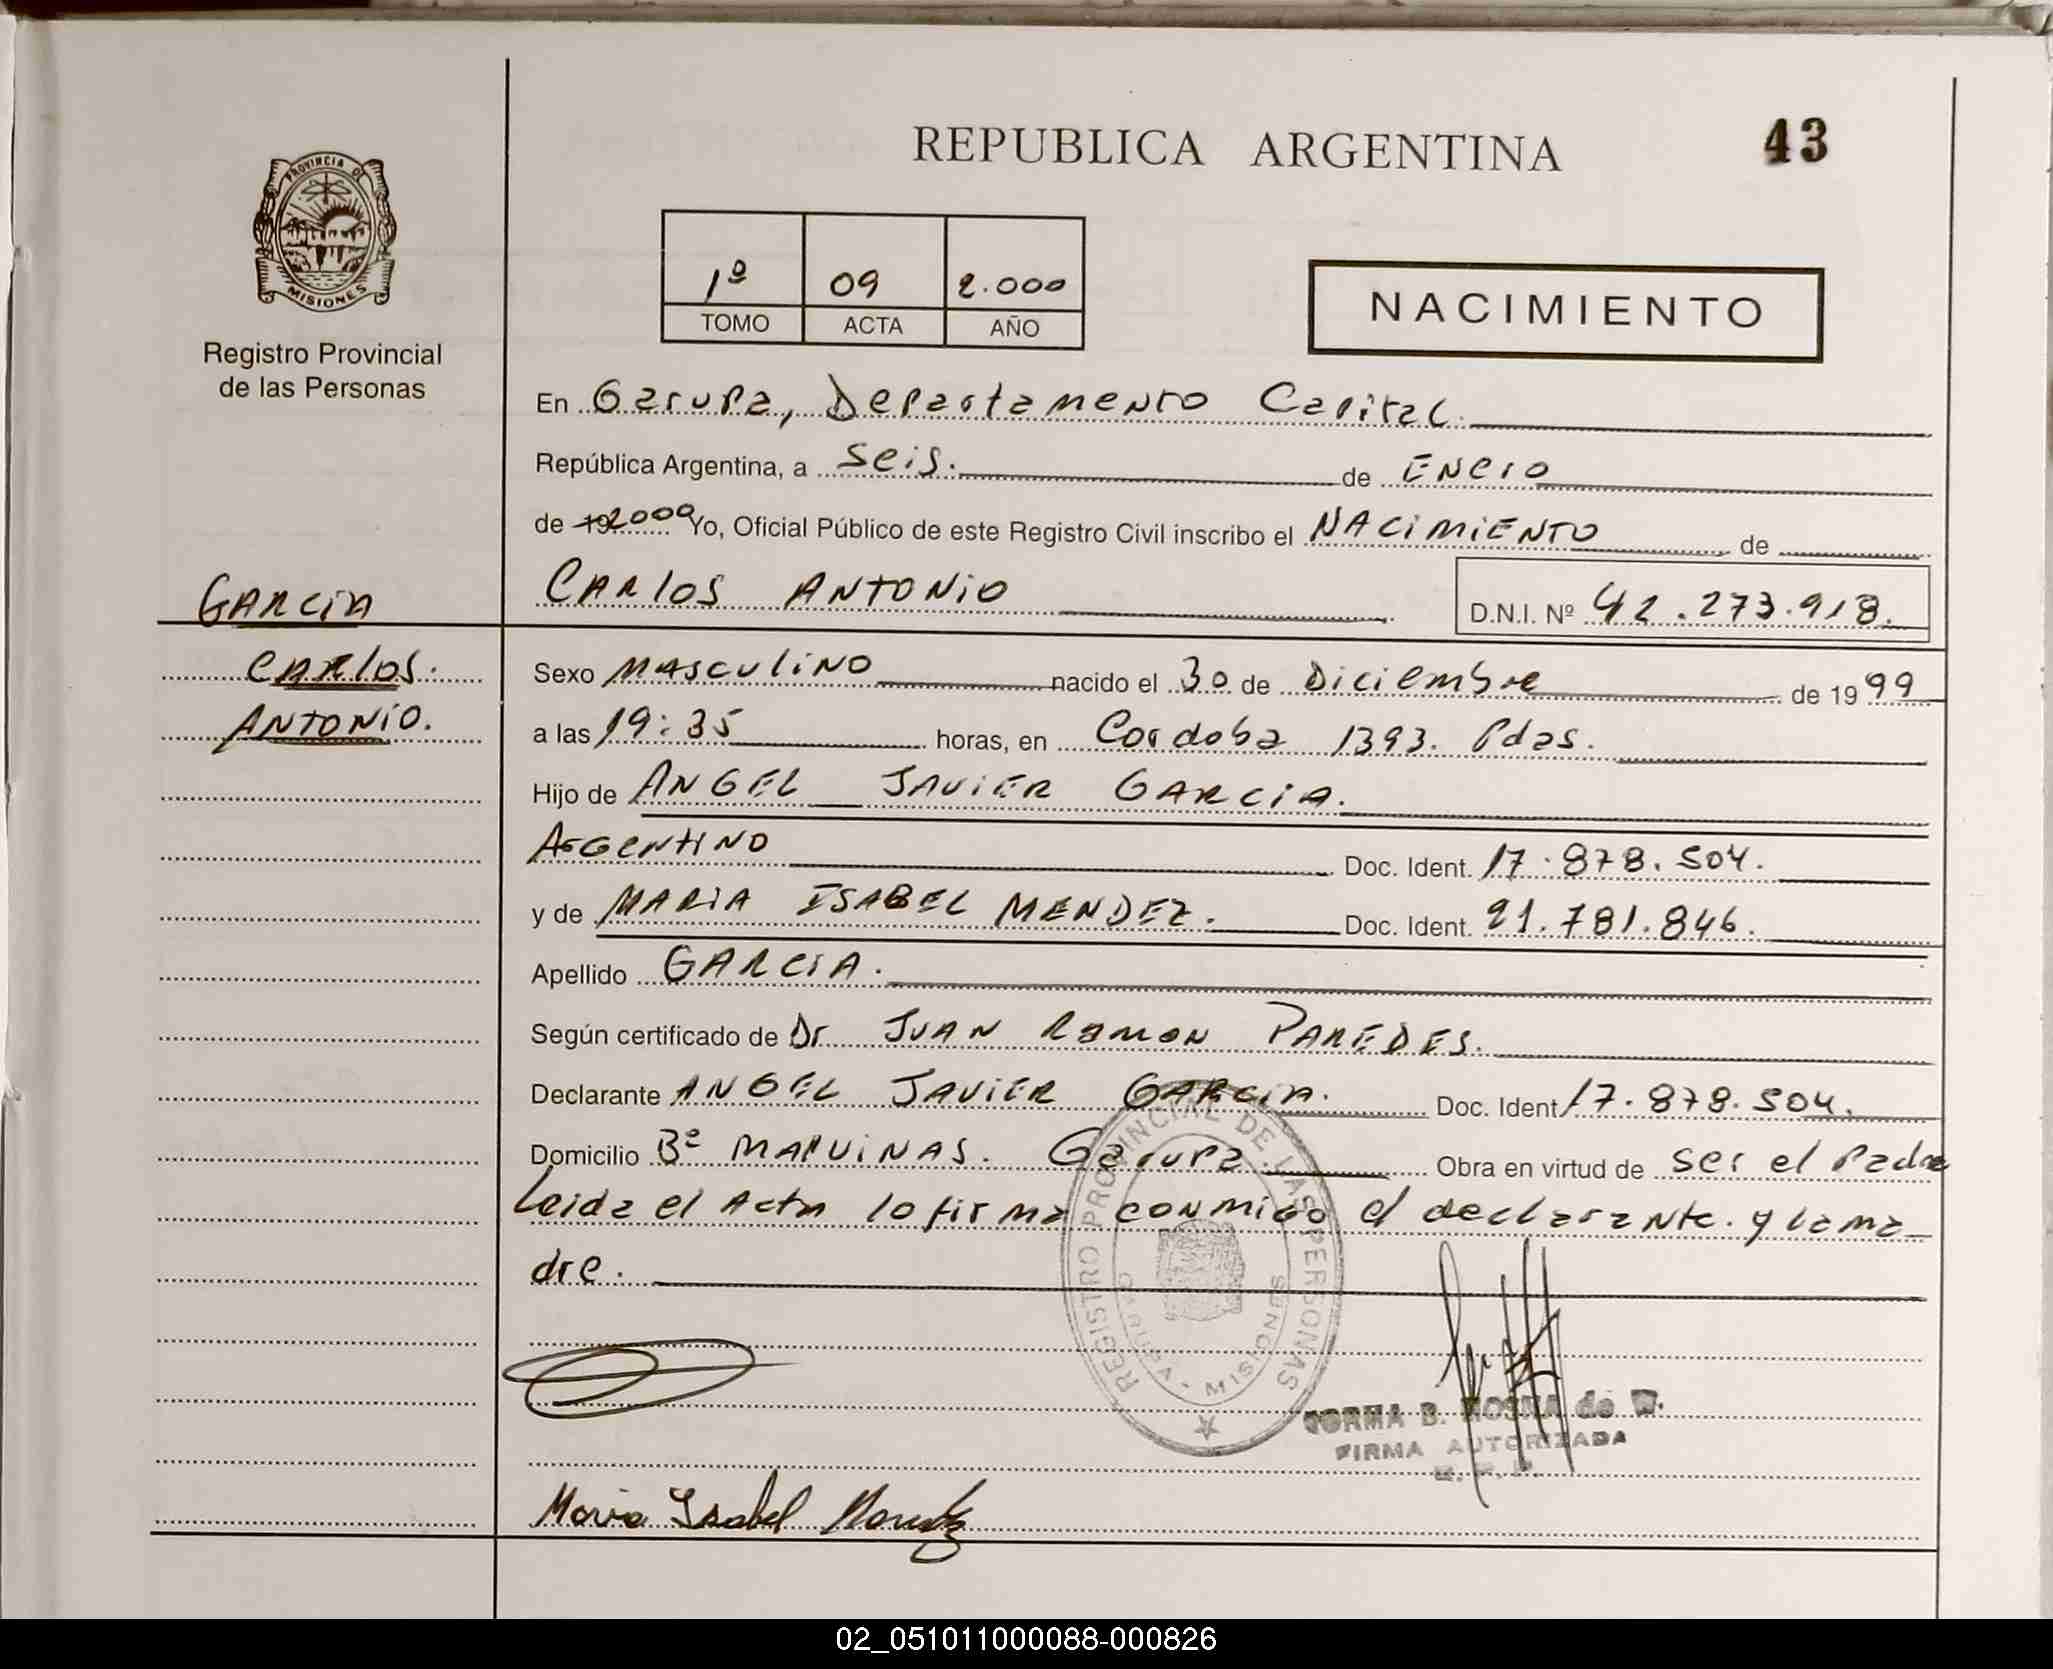 REPUBLICA ARGENTINA
43
PROVINCIA DE
MISIONES
Registro Provincial
de las Personas
1º 09 2.000
TOMO ACTA AÑO
NACIMIENTO
En Garupa, Departamento Capital.
República Argentina, a seis. de Enero
de 19 2000 Yo, Oficial Público de este Registro Civil inscribo el NACIMIENTO de
GARCIA
CARLOS ANTONIO D.N.I. Nº 42.273.918.
CARLOS.
Sexo MASCULINO nacido el 30 de Diciembre de 19 99
ANTONIO.
a las 19:35 horas, en Cordoba 1393. Pdas.
Hijo de ANGEL JAVIER GARCIA.
ARGENTINO Doc. Ident. 17.878.504.
y de MARIA ISABEL MENDEZ. Doc. Ident. 21.781.846.
Apellido GARCIA.
Según certificado de Dr JUAN RAMON PAREDES.
Declarante ANGEL JAVIER GARCIA. Doc. Ident 17.878.504.
Domicilio Bº MALVINAS. Garupa Obra en virtud de ser el Padre
Leida el Acta lo firma conmigo el declarante. y la ma
dre.
REGISTRO PROVINCIAL DE LAS PERSONAS
GARUPA - MISIONES
NORMA B. de W.
FIRMA AUTORIZADA
Maria Isabel Mendez
02_051011000088-000826